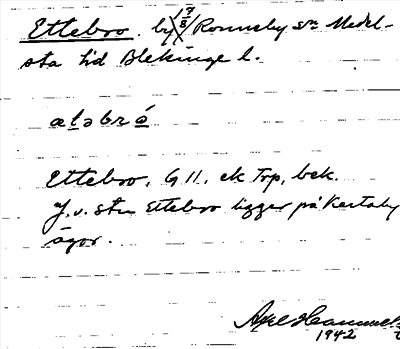 Ettebro, by 17/8 Ronneby sn Medel-
sta hd Blekinge l.
ætəbró
Ettebro, G 11, ek Top, bek.
N.v. str Ettebro ligger på Kartaby
ägor.
Axel
1942